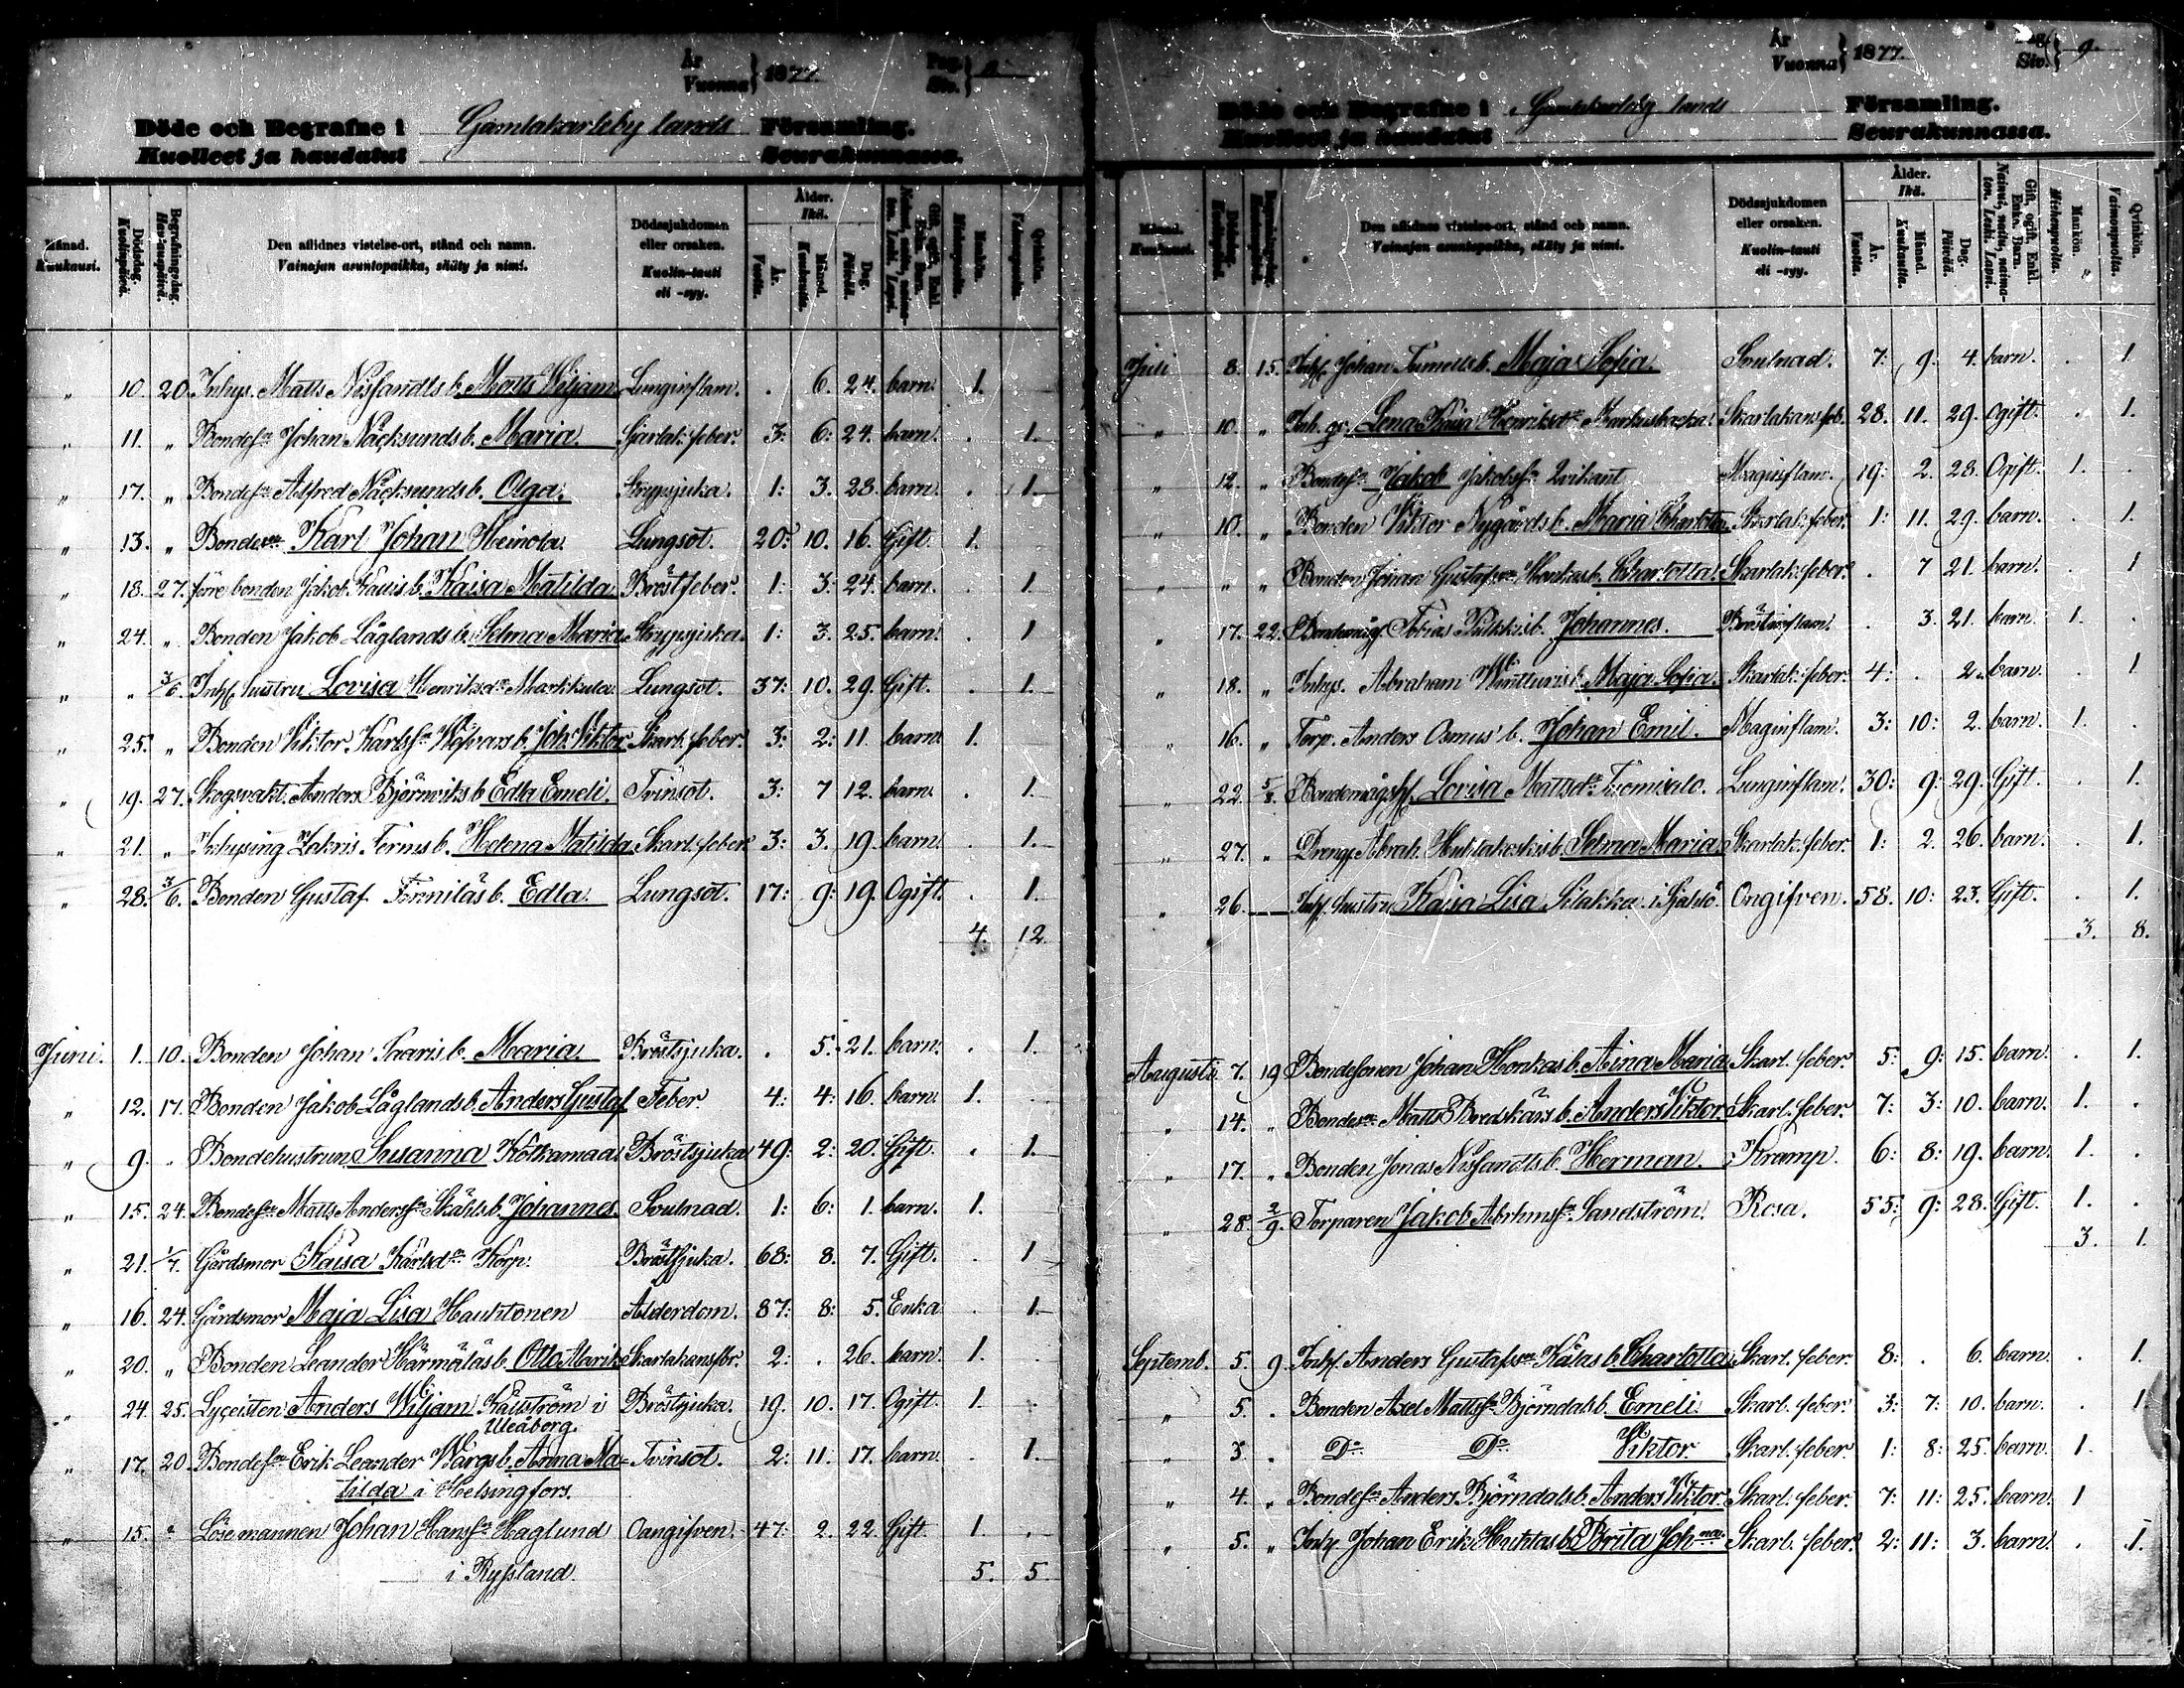 År
Vuonna } 1877.
Pag.
Siv.
Döde och Begrafne i Gamlakarleby lands Församling.
Kuolleet ja haudatut Seurakunnassa.
Månad. Kuukausi. Dödsdag. Kuolinpäivä. Begrafningsdag. Hautauspäivä. Den aflidnes vistelse-ort, stånd och namn. Vainajan asuntopaikka, sääty ja nimi. Dödssjukdomen eller orsaken. Kuolin-tauti eli -syy. Ålder. Ikä. År. Vuotta. Månad. Kuukautta. Dag. Päivää.
" 10. 20. Inhys. Matts Nissandts b. Matts Wiljam Lunginflam. . 6. 24. barn. 1.
" 11. " Bondes. Johan Näcksunds b. Maria. Sjarlak. feber. 3: 6: 24. barn. . 1.
" 17. " Bondes. Alfred Näcksunds b. Olga. Strypsjuka. 1: 3. 23. barn. . 1.
" 13. " Bonden Karl Johan Heinola. Lungsot. 20: 10. 16. Gift. 1.
" 18. 27. före bonden Jakob Kauis b. Kaisa Matilda Bröstfeber. 1: 3: 24. barn. . 1.
" 24. " Bonden Jakob Låglands b. Selma Maria Strypsjuka. 1: 3. 25. barn. . 1
" " 3/6 Inhs. hustru Lovisa Henriksdr Markkula Lungsot. 37: 10. 29. Gift. . 1.
" 25. " Bonden Viktor Karlss. b. Joh. Viktor Skarl. feber. 3: 2: 11. barn. 1.
" 19. 27. Skogsvakt. Anders Björnviks b Edla Emeli. Tvinsot. 3: 7 12. barn. . 1.
" 21. " Inhysing Zakris Ferins b. Helena Matilda Skarl. feber 3: 3. 19. barn. . 1.
" 28. 3/6. Bonden Gustaf b. Edla. Lungsot. 17: 9: 19. Ogift. . 1.
4. 12.
Juni. 1. 10. Bonden Johan Saaris b. Maria. Bröstsjuka. . 5. 21. barn. . 1.
" 12. 17. Bonden Jakob Låglands b. Anders Gustaf Feber. 4: 4: 16. barn. 1. .
" 9. " Bondehustrun Susanna Kotkamaa Bröstsjuka 49: 2: 20. Gift. . 1.
" 15. 24. Bondes. Matts Anderss. Ståhls b. Johannes. Soulnad. 1: 6: 1. barn. 1.
" 21. 1/7. Gårdsmor Kaisa Karlsdr Korp. Bröstsjuka. 68: 8. 7. Gift. . 1
" 16. 24. Gårdsmor Maja Lisa Hauhtonen Alderdom. 87: 8: 5. Enka . 1.
" 20. " Bonden Leander Härmäläs b. Otto Alarik Skarlakansfbr. 2: . 26. barn. 1.
" 24 25. Lyceisten Anders Wiljam Källström i Bröstsjuka. 19. 10. 17. Ogift. 1.
Uleåborg.
" 17. 20. Bondes. Erik Leander Wargs b. Anna Ma= Tvinsot. 2: 11. 17. barn. . 1.
tilda i Helsingfors.
" 15. " Lösemannen Johan Hanss. Haglund Oangifven. 47: 2. 22. Gift. 1. .
i Ryssland. 5. 5
År
Vuonna } 1877.
Siv. } 9.
Döde och Begrafne i Gamlakarleby lands Församling.
Kuolleet ja haudatut Seurakunnassa.
Månad. Kuukausi. Dödsdag. Kuolinpäivä. Begrafningsdag. Den aflidnes vistelse-ort, stånd och namn. Vainajan asuntopaikka, sääty ja nimi. Dödssjukdomen eller orsaken. Kuolin-tauti eli -syy. Ålder. Ikä. År. Vuotta. Månad. Kuukautta. Dag. Päivää. Gift, ogift, Enkl. Enka. Barn. Mankön. Miehenpuolta. Qvinkön. Vaimonpuolta.
Juli 8. 15. Inhs. Johan b. Maja Sofia. Soulnad. 7: 9: 4. barn. 1.
" 10. " Inh. Lena Kaisa Henriksdr Markusbacka. Skarlakansfeb. 28. 11. 29. Ogift. . 1.
" 12. " Bondes. Jakob Jakobss. Qvikant Maginflam. 19: 2. 28. Ogift. 1. .
" 10. " Bonden Viktor Nygårds b. Maria Charlotta Skarlak. feber. 1: 11. 29. barn. . 1.
" " " Bonden Johan Gustafsson Honkas b. Charlotta. Skarlak. feber. . 7 21. barn. . 1
" 17. 22. Bondemåg. Tobias b. Johannes. Bröstinflam. . 3. 21. barn. 1. .
" 18. " Inhys. Abraham b. Maja Sofia. Skarlak. feber. 4: . 2. barn. . 1
" 16. " Torp. Anders Asmus b. Johan Emil. Maginflam. 3: 10: 2. barn. 1. .
" 22. 5/8. Bondemågsh. Lovisa Mattsdr Tuomisalo. Lunginflam. 30: 9: 29. Gift. . 1.
" 27. " Dreng. Abrah. b. Selma Maria Skarlak. feber. 1: 2. 26. barn. . 1.
" 26. Inhs. hustru Kaisa Lisa Silakka i Sjählö. Ongifven. 58. 10: 23. Gift. . 1.
3. 8.
Augusti 7. 19 Bondesonen Johan Honkas b. Aina Maria Skarl. feber. 5: 9: 15. barn. . 1.
" 14. " Bondes. Matts Bredskärs b. Anders Viktor Skarl. feber. 7: 3: 10. barn. 1. .
" 17. " Bonden Jonas Nissandts b. Herman. Kramp. 6: 8: 19. barn. 1. .
" 28. 2/9. Torparen Jakob Abrhmss. Sandström. Rosa. 55: 9: 28. Gift. 1. .
3. 1.
Septemb. 5. 9. Inhs. Anders Gustafsson Kålas b. Charlotta Skarl. feber. 8: . 6. barn. . 1.
" 5. . Bonden Axel Mattss. Björndals b. Emeli. Skarl. feber. 3: 7: 10. barn. . 1.
" 3. . Do Do Viktor. Skarl. feber. 1: 8: 25. barn. 1.
" 4. " Bondes. Anders Björndals b. Anders Viktor. Skarl. feber. 7: 11: 25. barn. 1
" 5. " Inhs. Johan Erik Huhtas b. Brita Johna. Skarl. feber. 2: 11: 3. barn. . 1.